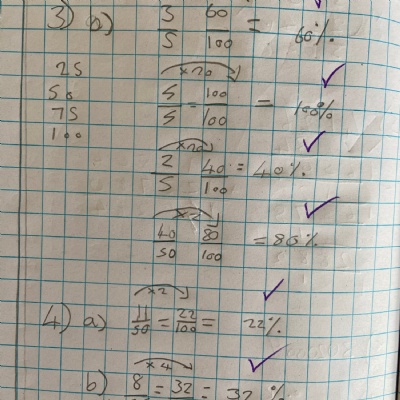 3) b) 3/5 60/100 = 60%
25
50
75
100
x20
5/5 = 100/100 = 100%
x20
2/5 40/100 = 40%
x2
40/50 80/100 = 80%
x2
4) a) 11/50 = 22/100 = 22%
x4
b) 8 = 32 = 32 %